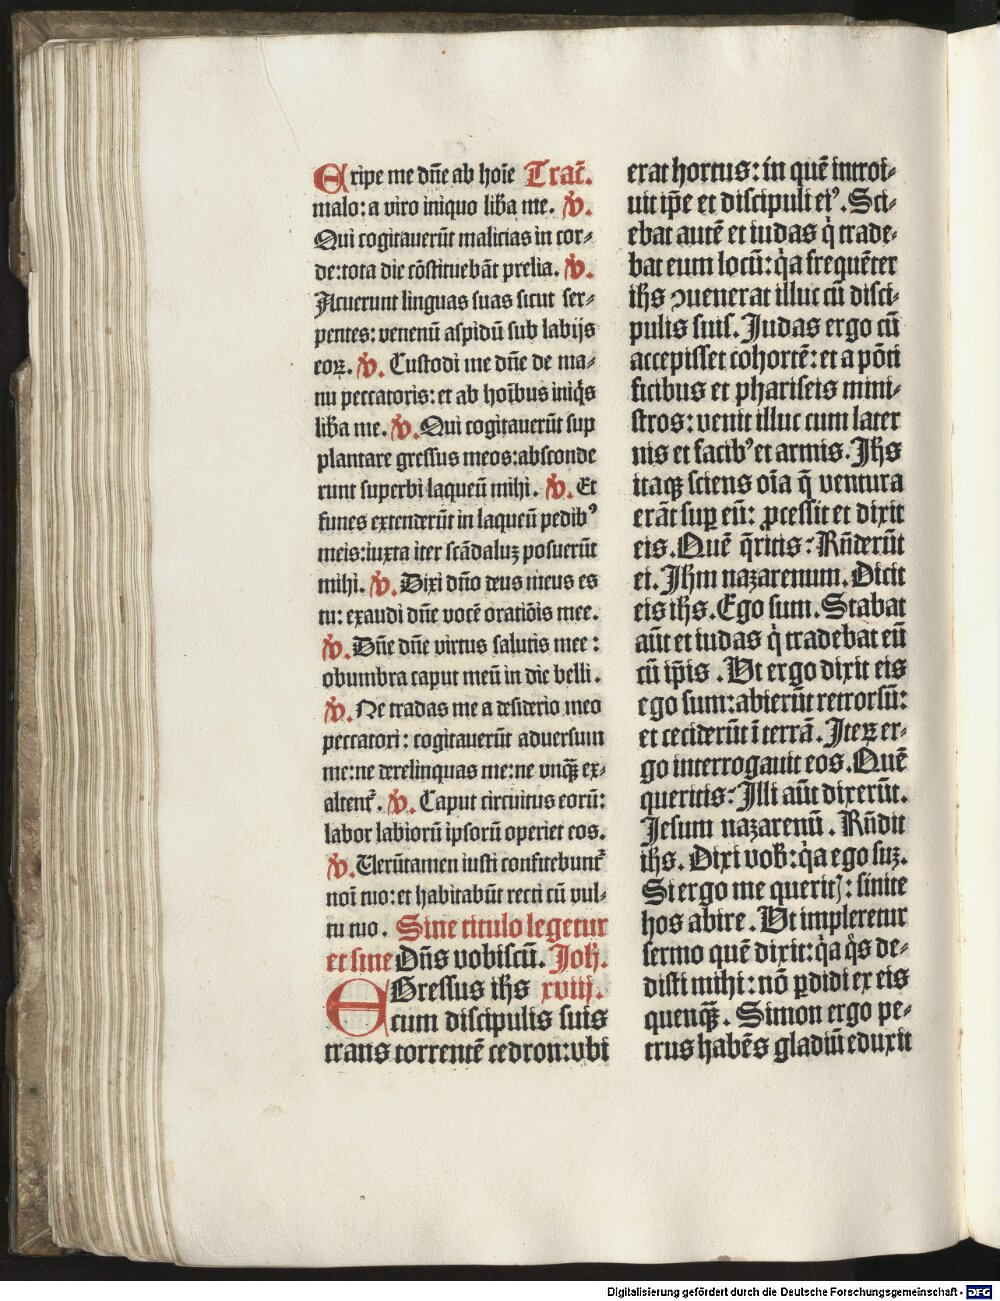 Eripe me dñe ab hoīe Tract̄.
malo: a viro iniquo lib̄a me. ℣.
Qui cogitauerūt malicias in cor-
de: tota die cōstituebāt prelia. ℣.
Acuerunt linguas suas sicut ser-
pentes: venenū aspidū sub labijs
eoꝝ. ℣. Custodi me dñe de ma-
nu peccatoris: et ab hoībus iniq̇s
lib̄a me. ℣. Qui cogitauerūt sup
plantare gressus meos: absconde
runt superbi laqueū mihi. ℣. Et
funes extenderūt in laqueū pedibꝰ
meis: iuxta iter scādaluꝫ posuerūt
mihi. ℣. Dixi dño deus meus es
tu: exaudi dñe vocē oratiōis mee.
℣. Dñe dñe virtus salutis mee:
obumbra caput meū in die belli.
℣. Ne tradas me a desiderio meo
peccatori: cogitauerūt aduersum
me: ne derelinquas me: ne vnqꝫ ex-
altent᷑. ℣. Caput circuitus eorū:
labor labiorū ipsorū operiet eos.
℣. Uerūtamen iusti confitebunt᷑
noī tuo: et habitabūt recti cū vul-
tu tuo. Sine titulo legetur
et sine Dñs vobiscū. Joh̄.
EGressus ih̄s xviij.
cum discipulis suis
trans torrentē cedron: vbi
erat hortus: in quē introi-
uit ip̄e et discipuli eiꝰ. Sci-
ebat autē et iudas q̇ trade-
bat eum locū: q̇a frequēter
ih̄s ꝯuenerat illuc cū disci-
pulis suis. Judas ergo cū
accepisset cohortē: et a pōti
ficibus et phariseis mini-
stros: venit illuc cum later
nis et facibꝰ et armis. Jh̄s
itaqꝫ sciens oīa q̄ ventura
erāt suꝑ eū: ꝓcessit et dixit
eis. Quē q̄ritis: Rn̄derūt
ei. Jh̄m nazarenum. Dicit
eis ih̄s. Ego sum. Stabat
aūt et iudas q̇ tradebat eū
cū ip̄is. Vt ergo dixit eis
ego sum: abierūt retrorsū:
et ceciderūt ī terrā. Iteꝝ er-
go interrogauit eos. Quē
queritis: Illi aūt dixerūt.
Jesum nazarenū. Rn̄dit
ih̄s. Dixi vob̄: q̇a ego suꝫ.
Si ergo me querit̉: sinite
hos abire. Vt impleretur
sermo quē dixit: q̇a q̇s de-
disti mihi: nō ꝑdidi ex eis
quenqꝫ. Simon ergo pe-
trus habēs gladiū eduxit
Digitalisierung gefördert durch die Deutsche Forschungsgemeinschaft - DFG